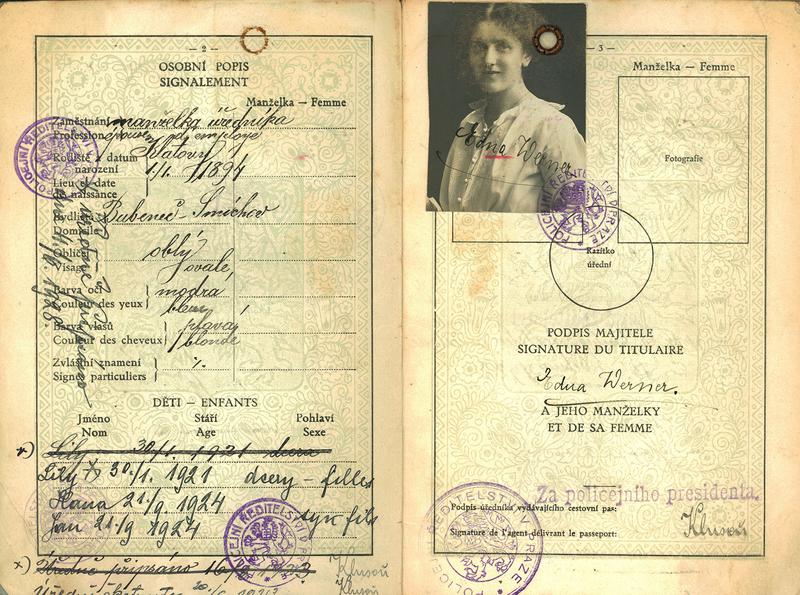 — 2 —
OSOBNÍ POPIS
SIGNALEMENT
Manželka — Femme
Zaměstnání manželka úředníka
Profession épouse d'employé
Rodiště a datum
narození
1/1. 1894
Lieu et date
de naissance
Bydliště Bubeneč Smíchov
Domicile
Obličej oblý
Visage ovale
Barva očí modrá
Couleur des yeux bleu
Barva vlasů plavá
Couleur des cheveux blonde
Zvláštní znamení
Signes particuliers
DĚTI – ENFANTS
Jméno Stáří Pohlaví
Nom Age Sexe
Lily 30/1. 1921 dcera
Lily 30/1. 1921 dcery - filles
Hana 21/9 1924
Jan 21/9 1924 syn fils
x) Úředně připsáno
Klusoň
— 3 —
Manželka — Femme
Edna Werner
Fotografie
POLICEJNÍ ŘEDITELSTVÍ V PRAZE
Razítko
úřední
PODPIS MAJITELE
SIGNATURE DU TITULAIRE
Edna Werner.
A JEHO MANŽELKY
ET DE SA FEMME
Za policejního presidenta.
Podpis úředníka vydávajícího cestovní pas:
Klusoň
Signature de l'agent délivrant le passeport: